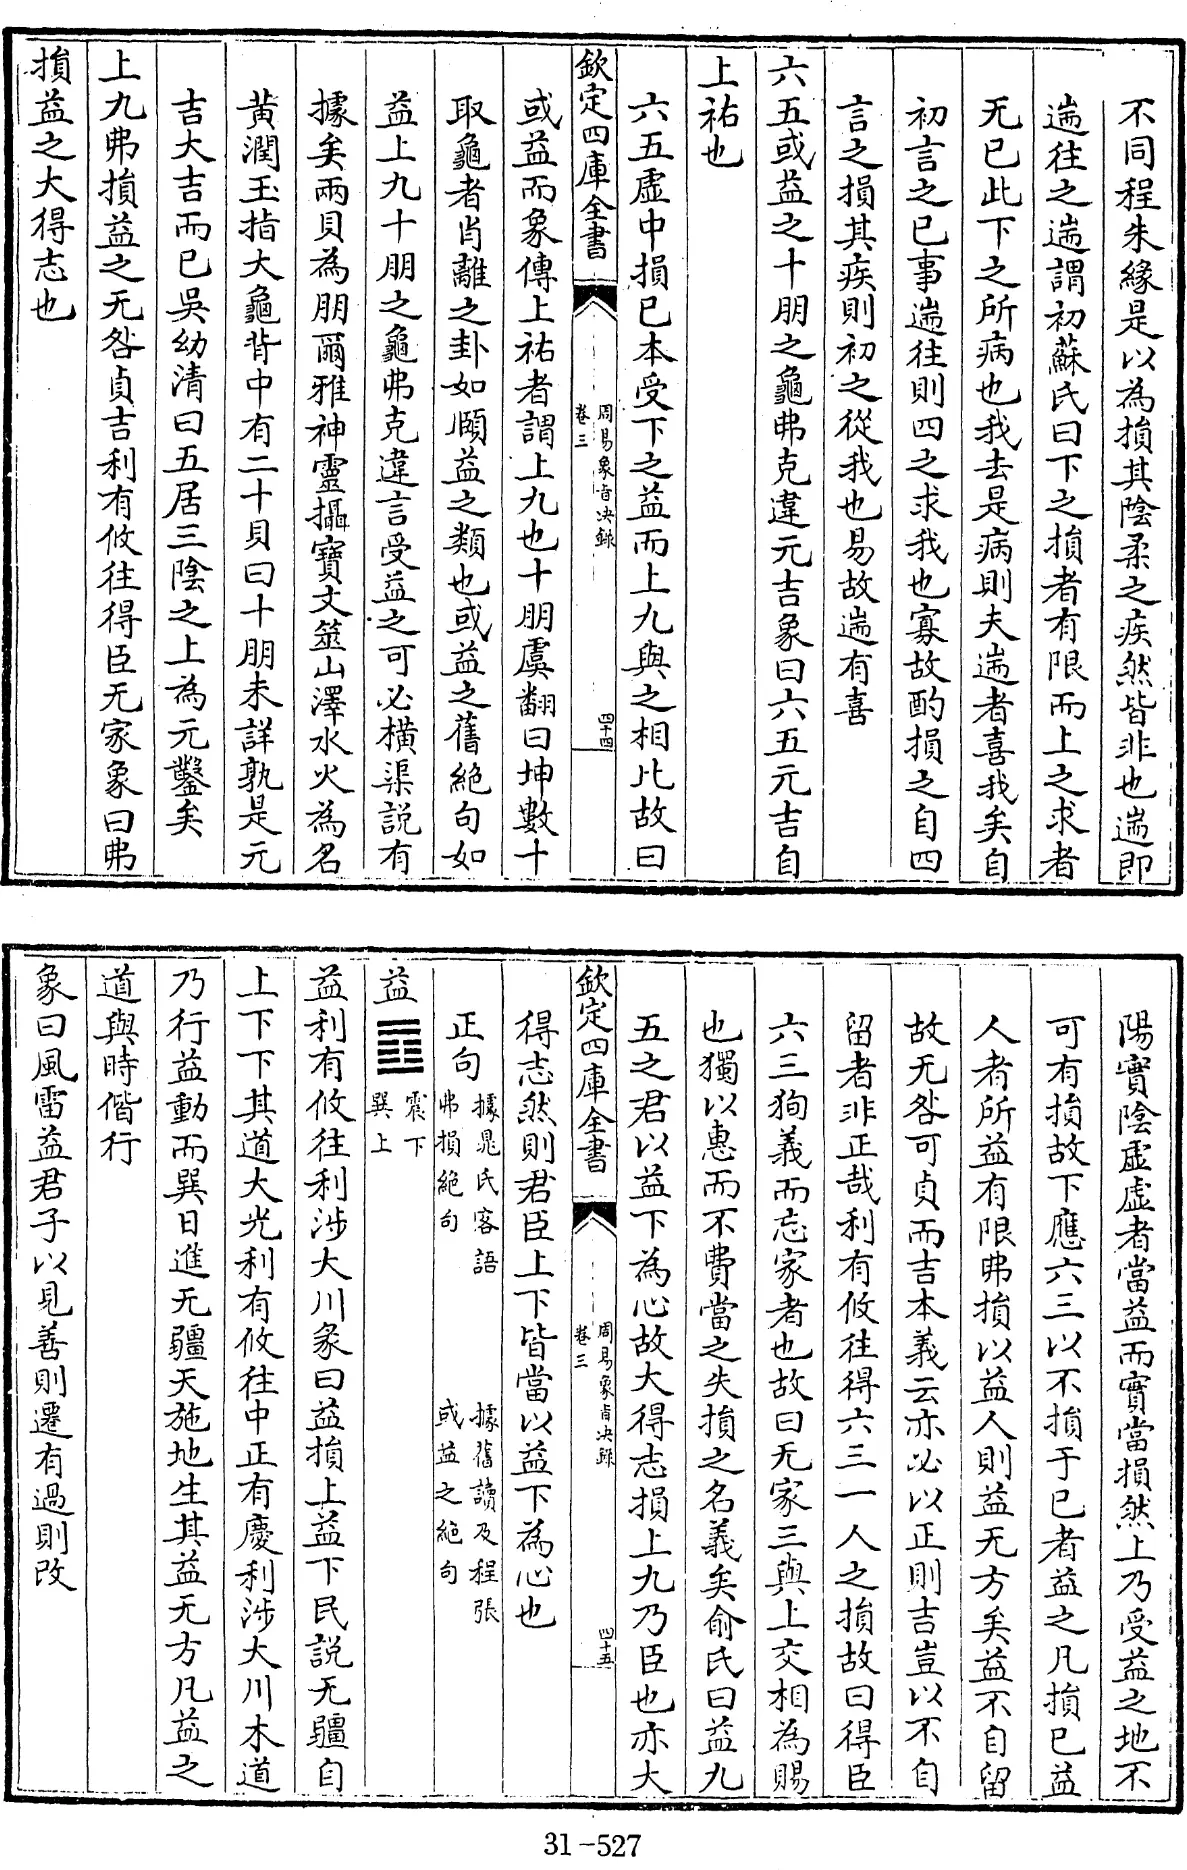 不同程朱緣是以為損其陰柔之疾然皆非也遄即
遄往之遄謂初蘇氏曰下之損者有限而上之求者
无已此下之所病也我去是病則夫遄者喜我矣自
初言之已事遄往則四之求我也寡故酌損之自四
言之損其疾則初之從我也易故遄有喜
六五或益之十朋之龜弗克違元吉象曰六五元吉自
上祐也
六五虛中損已本受下之益而上九與之相比故曰
欽定四庫全書
周易象旨决錄
卷三
四十四
或益而象傳上祐者謂上九也十朋虞翻曰坤數十
取龜者肖離之卦如頤益之類也或益之舊絶句如
益上九十朋之龜弗克違言受益之可必橫渠説有
據矣兩貝為朋爾雅神靈攝寶文筮山澤水火為名
黄潤玉指大龜背中有二十貝曰十朋未詳孰是元
吉大吉而已吳幼清曰五居三陰之上為元鑿矣
上九弗損益之无咎貞吉利有攸往得臣无家象曰弗
損益之大得志也
陽實陰虛虛者當益而實當損然上乃受益之地不
可有損故下應六三以不損于已者益之凡損已益
人者所益有限弗損以益人則益无方矣益不自留
故无咎可貞而吉本義云亦必以正則吉豈以不自
留者非正哉利有攸往得六三一人之損故曰得臣
六三狥義而忘家者也故曰无家三與上交相為賜
也獨以惠而不費當之失損之名義矣俞氏曰益九
五之君以益下為心故大得志損上九乃臣也亦大
欽定四庫全書
周易象旨决錄
卷三
四十五
得志然則君臣上下皆當以益下為心也
正句
據晁氏客語
弗損絶句
據舊讀及程張
或益之絶句
益
震下
巽上
益利有攸往利涉大川彖曰益損上益下民説无疆自
上下下其道大光利有攸往中正有慶利涉大川木道
乃行益動而巽日進无疆天施地生其益无方凡益之
道與時偕行
象曰風雷益君子以見善則遷有過則改
31-527